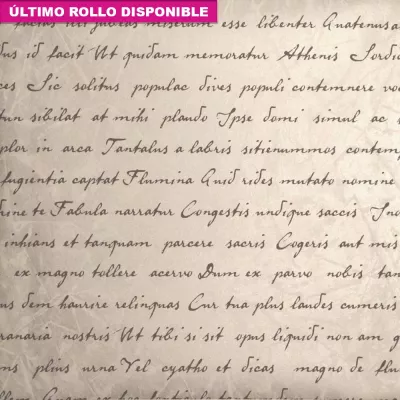 ÚLTIMO ROLLO DISPONIBLE
facias illi jubeas miserum esse libenter Quatenus
dus id facit Ut quidam memoratur Athenis Sordid
ces Sic solitus populac dives populi contemnere vo
tun sibilat at mihi plaudo Ipse domi simul ac
plor in arca Tantalus a labris sitienummos contem
fugientia captat Flumina Quid rides mutato nomine
hine te Fabula narratur Congestis undique saccis
inhians et tanquam parcere sacris Cogeris aut mis
ex magno tollere acervo Dum ex parvo nobis tan
us dem haurire relinquas Cur tua plus laudes cumeris
ranaria nostris Ut tibi si sit opus liquidi non am
ns plius urna Vel cyatho et dicas magno de flu